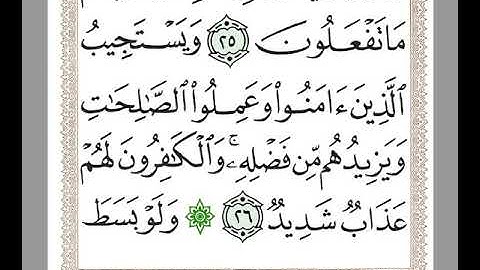 مَا تَفْعَلُونَ ٢٥ وَيَسْتَجِيبُ
ٱلَّذِينَ ءَامَنُوا۟ وَعَمِلُوا۟ ٱلصَّٰلِحَٰتِ
وَيَزِيدُهُم مِّن فَضْلِهِۦ ۚ وَٱلْكَٰفِرُونَ لَهُمْ
عَذَابٌ شَدِيدٌ ٢٦ ۞ وَلَوْ بَسَطَ